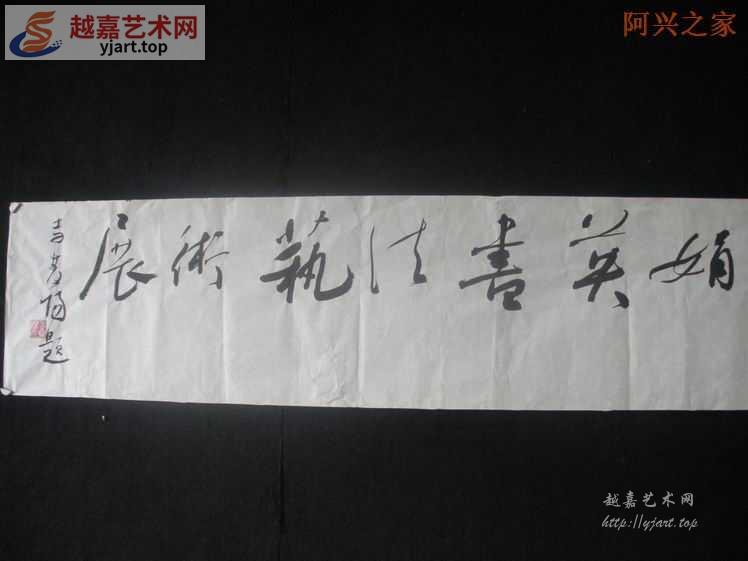 越嘉艺术网
yjart.top
阿兴之家
娟英書法藝術展
題
越嘉艺术网
http://yjart.top